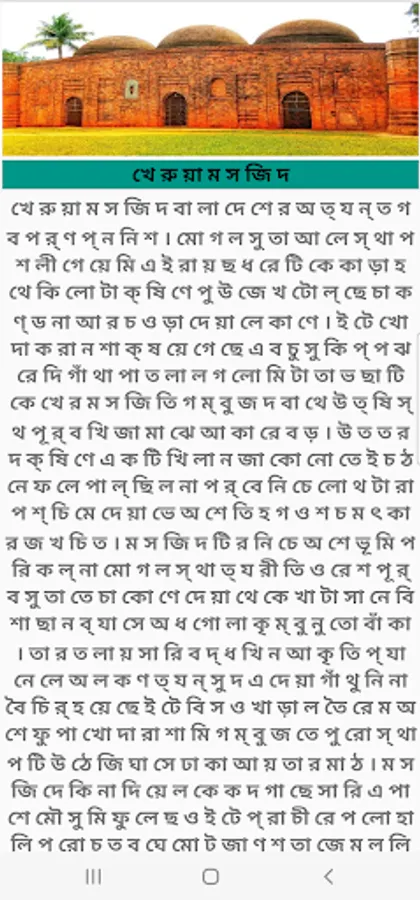 খে রু য়া ম স জি দ
খে রু য়া ম স জি দ বা লা দে শে র অ ত্ য ন্ ত গ
ব প র্ ণ প্ ন নি শ । মো গ ল সু তা আ লে স্ থা প
শ লী গে য়ে মি এ ই রা য় ছ ধ রে টি কে কা ড়া হ
থে কি লো টা ক্ ষি ণে পু উ জে খ টো ল্ ছে চা ক
ণ্ ড না আ র চ ও ড়া দে য়া লে কা ণে । ই টে খো
দা ক রা ন শা ক্ ষ য়ে গে ছে এ ব চু সু কি প্ প ঝ
রে দি গাঁ থা পা ত লা ল গ লো মি টা তা ভ ছা টি
কে খে র ম স জি তি গ ম্ বু জ দ বা থে উ ত্ ষি স্
থ পূ র্ ব খি জা মা ঝে আ কা রে ব ড় । উ ত ত র
দ ক্ ষি ণে এ ক টি খি লা ন জা কো নো তে ই চ ঠ
নে ফ লে পা ল্ ছি ল না প র্ বে নি চে লো থ টা রা
প শ্ চি মে দে য়া ভে অ শে তি হ গ ও শ চ ম ৎ কা
র জ খ চি ত । ম স জি দ টি র নি চে অ শে ভূ মি প
রি ক ল্ না মো গ ল স্ থা ত্ য রী তি ও রে শ পূ র্
ব সু তা তে চা কো ণে দে য়া থে কে খা টা সা নে বি
শা ছা ন ব্ যা সে অ ধ গো লা কৃ ম্ বু নু তো বাঁ কা
। তা র ত লা য় সা রি ব দ্ ধ খি ন আ কৃ তি প্ যা
নে লে অ ল ক ণ ত্ য ন্ সু দ এ দে য়া গাঁ থু নি না
বৈ চি র্ হ য়ে ছে ই টে বি স ও খা ড়া ল তৈ রে ম অ
শে ফু পা খো দা রা শা মি গ ম্ বু জ তে পু রো স্ থা
প টি উ ঠে জি ঘা সে ঢা কা আ য় তা র মা ঠ । ম স
জি দে কি না দি য়ে ল কে ক দ গা ছে সা রি এ পা
শে মৌ সু মি ফু লে ছ ও ই টে প্ রা চী রে প লো হা
লি প রো চ ত ব ঘে মো ট জা ণ শ তা জে ম ল লি